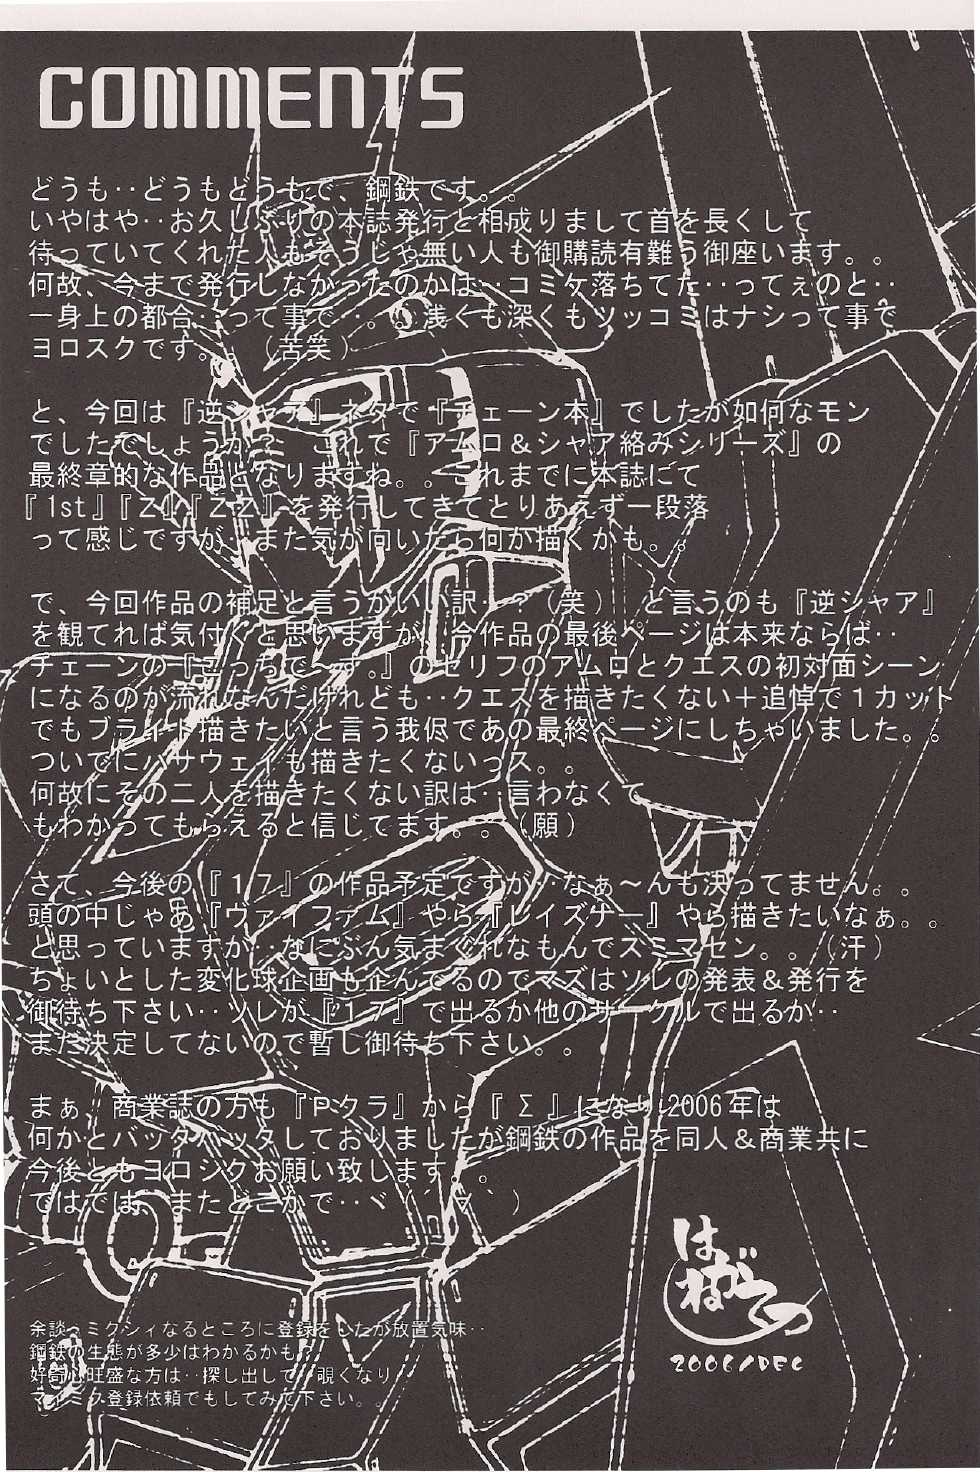 COMMENTS
どうも‥どうもどうもで、鋼鉄です。。
いやはや‥お久しぶりの本誌発行と相成りまして首を長くして
待っていてくれた人もそうじゃ無い人も御購読有難う御座います。。
何故、今まで発行しなかったのかは‥コミケ落ちてた‥ってぇのと‥
一身上の都合‥って事で‥。。浅くも深くもツッコミはナシって事で
ヨロスクです。。（苦笑）
と、今回は『逆シャア』ネタで『チェーン本』でしたが如何なモン
でしたでしょうか？ これで『アムロ＆シャア絡みシリーズ』の
最終章的な作品となりますね。。これまでに本誌にて
『1st』『Z』『ZZ』を発行してきてとりあえず一段落
って感じですが、また気が向いたら何か描くかも。。
で、今回作品の補足と言うかい、訳‥？（笑） と言うのも『逆シャア』
を観てれば気付くと思いますが、今作品の最後ページは本来ならば‥
チェーンの『こっちで〜す。』のセリフのアムロとクエスの初対面シーン
になるのが流れなんだけれども‥クエスを描きたくない＋追悼で１カット
でもブライト描きたいと言う我侭であの最終ページにしちゃいました。。
ついでにハサウェイも描きたくないっス。。
何故にその二人を描きたくない訳は‥言わなくて
もわかってもらえると信じてます。。（願）
さて、今後の『１７』の作品予定ですが‥なぁ〜んも決ってません。。
頭の中じゃあ『ヴァイファム』やら『レイズナー』やら描きたいなぁ。。
と思っていますが‥なにぶん気まぐれなもんでスミマセン。。（汗）
ちょいとした変化球企画も企んでるのでマズはソレの発表＆発行を
御待ち下さい‥ソレが『１７』で出るか他のサークルで出るか‥
まだ決定してないので暫し御待ち下さい。。
まぁ、商業誌の方も『Ｐクラ』から『Σ』になり2006年は
何かとバッタバッタしておりましたが鋼鉄の作品を同人＆商業共に
今後ともヨロシクお願い致します。。
ではでは、またどこかで‥ヾ（´▽｀）
はがねの
2006/DEC
余談っミクシィなるところに登録をしたが放置気味‥
鋼鉄の生態が多少はわかるかも？
好奇心旺盛な方は‥探し出して、覗くなり
マイミク登録依頼でもしてみて下さい。。